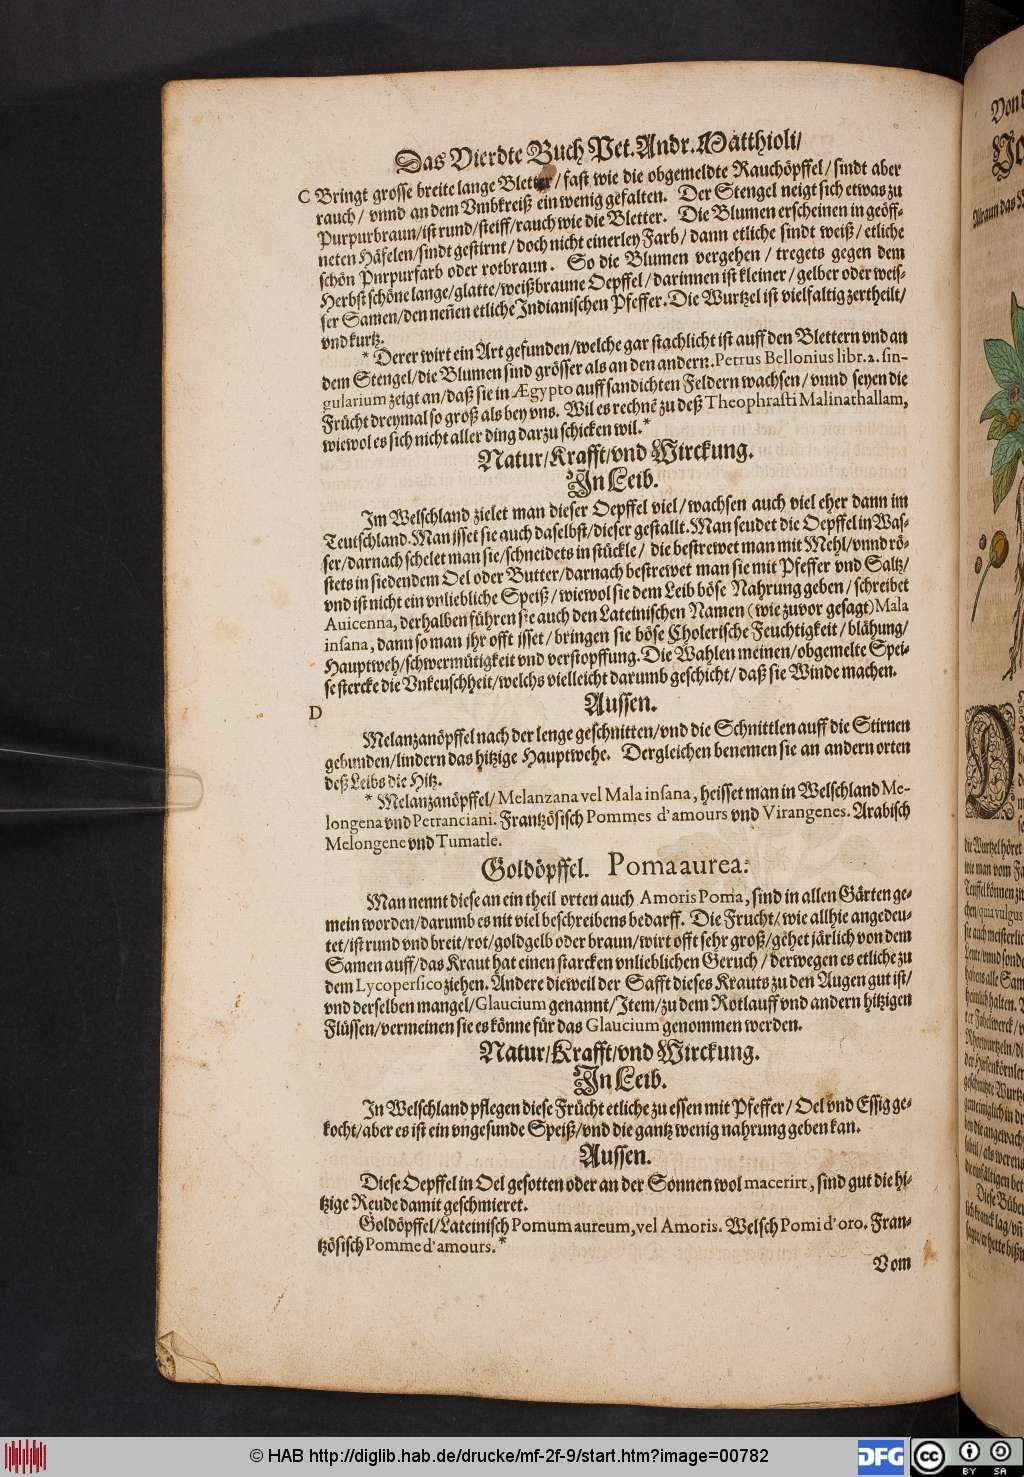 Das Vierdte Buch Pet. Andr. Matthioli/
C Bringt grosse breite lange Bletter/ fast wie die obgemeldte Rauchöpffel/ sindt aber
rauch/ vnnd an dem Vmbkreiß ein wenig gefalten. Der Stengel neigt sich etwas zu
Purpurbraun/ ist rund/ steiff/ rauch wie die Bletter. Die Blumen erscheinen in geöff-
neten Häfelen/ sindt gestirnt/ doch nicht einerley Farb/ dann etliche sindt weiß/ etliche
schön Purpurfarb oder rotbraun. So die Blumen vergehen/ tregets gegen dem
Herbst schöne lange/ glatte/ weißbraune Oepffel/ darinnen ist kleiner/ gelber oder weis-
ser Samen/ den neñen etliche Indianischen Pfeffer. Die Wurtzel ist vielfaltig zertheilt/
vnd kurtz.
* Derer wirt ein Art gefunden/ welche gar stachlicht ist auff den Blettern vnd an
dem Stengel/ die Blumen sind grösser als an den andern. Petrus Bellonius libr. 2. sin-
gularium zeigt an/ daß sie in Ægypto auff sandichten Feldern wachsen/ vnnd seyen die
Frücht dreymal so groß als bey vns. Wil es rechnẽ zu deß Theophrasti Malinathallam,
wiewol es sich nicht aller ding darzu schicken wil.*
Natur/ Krafft/ vnd Wirckung.
In Leib.
Im Welschland zielet man dieser Oepffel viel/ wachsen auch viel eher dann im
Teutschland. Man isset sie auch daselbst/ dieser gestallt. Man seudet die Oepffel in Was-
ser/ darnach schelet man sie/ schneidets in stückle/ die bestrewet man mit Mehl/ vnnd rö-
stets in siedendem Oel oder Butter/ darnach bestrewet man sie mit Pfeffer vnd Saltz/
vnd ist nicht ein vnliebliche Speiß/ wiewol sie dem Leib böse Nahrung geben/ schreibet
Auicenna, derhalben führen sie auch den Lateinischen Namen (wie zuvor gesagt) Mala
insana, dann so man ihr offt jsset/ bringen sie böse Cholerische Feuchtigkeit/ blähung/
Hauptweh/ schwermütigkeit vnd verstopffung. Die Wahlen meinen/ obgemelte Spei-
se stercke die Vnkeuschheit/ welchs vielleicht darumb geschicht/ daß sie Winde machen.
D
Aussen.
Melanzanöpffel nach der lenge geschnitten/ vnd die Schnittlen auff die Stirnen
gebunden/ lindern das hitzige Hauptwehe. Dergleichen benemen sie an andern orten
deß Leibs die Hitz.
* Melanzanöpffel/ Melanzana vel Mala insana, heisset man in Welschland Me-
longena vnd Petranciani. Frantzösisch Pommes d'amours vnd Virangenes. Arabisch
Melongene vnd Tumatle.
Goldöpffel. Poma aurea.
Man nennt diese an ein theil orten auch Amoris Poma, sind in allen Gärten ge-
mein worden/ darumb es nit viel beschreibens bedarff. Die Frucht/ wie allhie angedeu-
tet/ ist rund vnd breit/ rot/ goldgelb oder braun/ wirt offt sehr groß/ gehet järlich von dem
Samen auff/ das Kraut hat einen starcken vnlieblichen Geruch/ derwegen es etliche zu
dem Lycopersico ziehen. Andere dieweil der Safft dieses Krauts zu den Augen gut ist/
vnd derselben mangel/ Glaucium genannt/ Item/ zu dem Rotlauff vnd andern hitzigen
Flüssen/ vermeinen sie es könne für das Glaucium genommen werden.
Natur/ Krafft/ vnd Wirckung.
In Leib.
In Welschland pflegen diese Frücht etliche zu essen mit Pfeffer/ Oel vnd Essig ge-
kocht/ aber es ist ein vngesunde Speiß/ vnd die gantz wenig nahrung geben kan.
Aussen.
Diese Oepffel in Oel gesotten oder an der Sonnen wol macerirt, sind gut die hi-
tzige Reude damit geschmieret.
Goldöpffel/ Lateinisch Pomum aureum, vel Amoris. Welsch Pomi d'oro. Fran-
tzösisch Pomme d'amours.*
Vom
© HAB http://diglib.hab.de/drucke/mf-2f-9/start.htm?image=00782
DFG
cc
BY SA